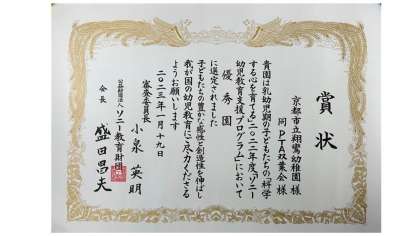 賞状
京都市立翔鸞幼稚園様
同PTA双葉会様
貴園は乳幼児期の子どもたちの「科学
する心を育てる」二〇二二年度「ソニー
幼児教育支援プログラム」において
優秀園
に選定されました
子どもたちの豊かな感性と創造性を伸ばし
我が国の幼児教育にご尽力くださる
ようお願いします
二〇二三年一月十九日
審査委員長
小泉英明
公益財団法人ソニー教育財団
会長
盛田昌夫